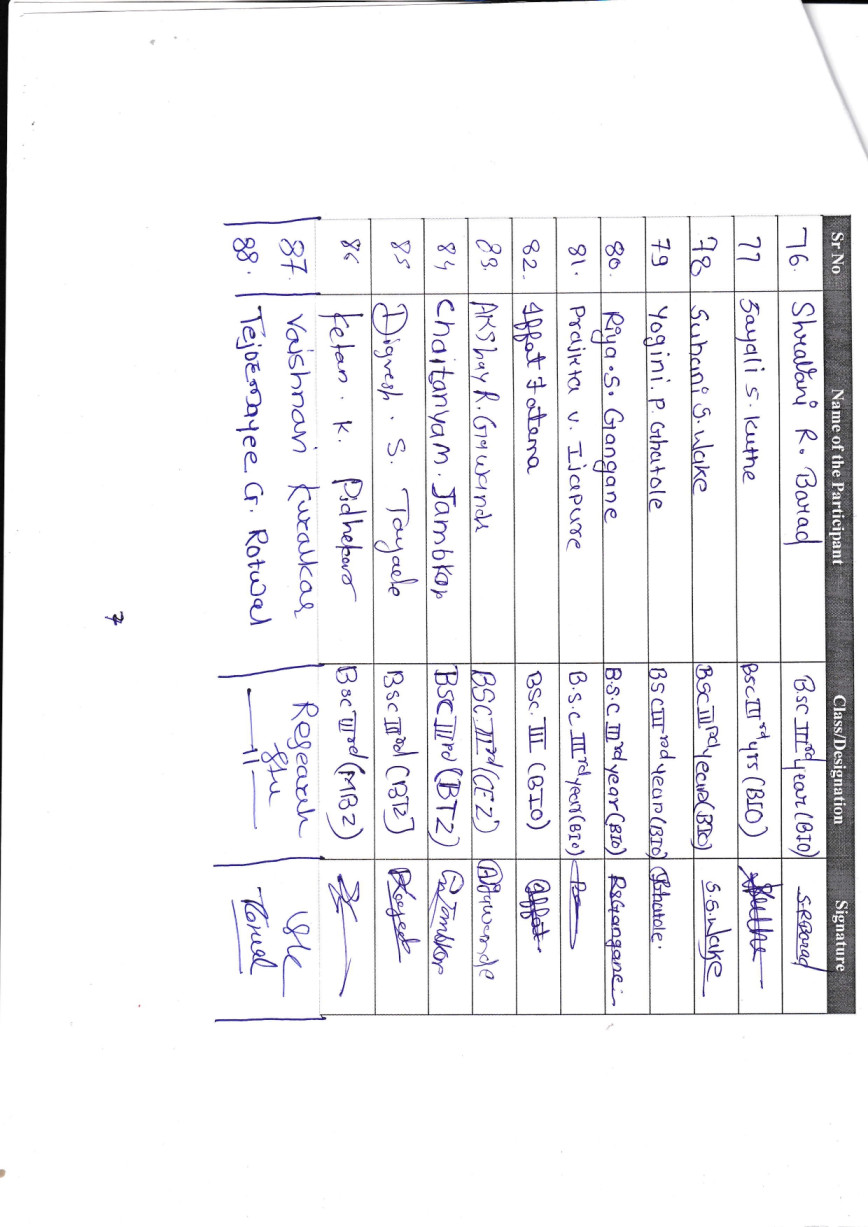 Sr No Name of the Participant Class/Designation Signature
76. Shravani R. Barad Bsc IIIrd year (BIO) S.R.Barad
77 Sayali S. Kuthe Bsc IIIrd yrs (BIO) Kuthe
78 Suhani S. Wake BSC IIIrd year (BIO) S.S.Wake
79 Yogini. P. Ghatole BSC IIIrd year (BIO) Ghatole.
80. Riya. S. Gangane B.S.C IIIrd year (BIO) RSGangane
81. Prajkta V. Ijapure B.S.C IIIrd year (BIO)
82. Iffat Fatema BSC. III (BIO) Iffat.
83. Akshay R. Gawande BSC. IIIrd (CEZ) Gawande
84 Chaitanya M. Jambkar BSC IIIrd (BTZ) Jambkar
85 Digvesh. S. Tayade Bsc IIIrd (BTZ)
86 Ketan. K. Bsc IIIrd (MBZ)
87. Vaishnavi Kuralkar Research Stu
88. Tejomayee G. Rotwal —11— Rotwal
7